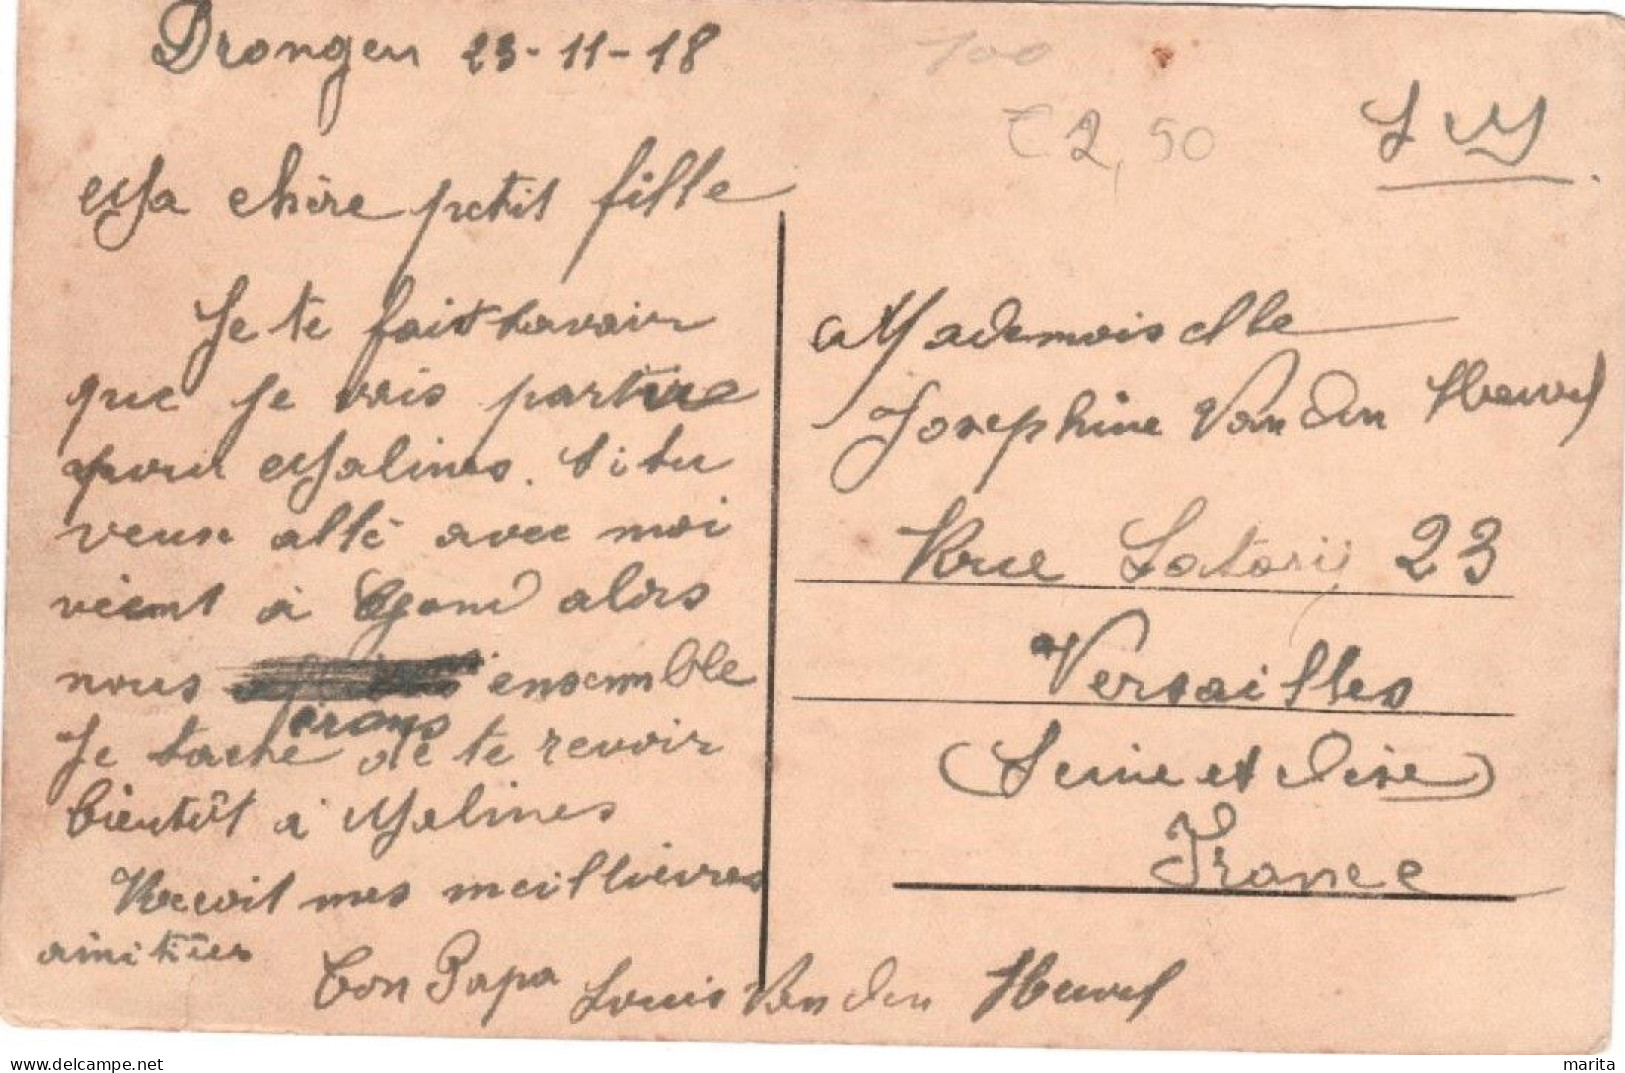 Drongen 23-11-18
Ma chère petit fille
Je te fait savoir
que je vais partire
pour Malines. si tu
veux allé avec moi
vient à Gand alors
nous ensemmble
irons
Je tache de te revoir
bientôt à Malines
Recoit mes meillieures
amitiées
Ton Papa Louis Van den Heuvel
100
€ 2,50
S M
Mademoiselle
Josephine Van den Heuvel
Rue Satorij 23
Versailles
(Seine et Oise)
France
marita